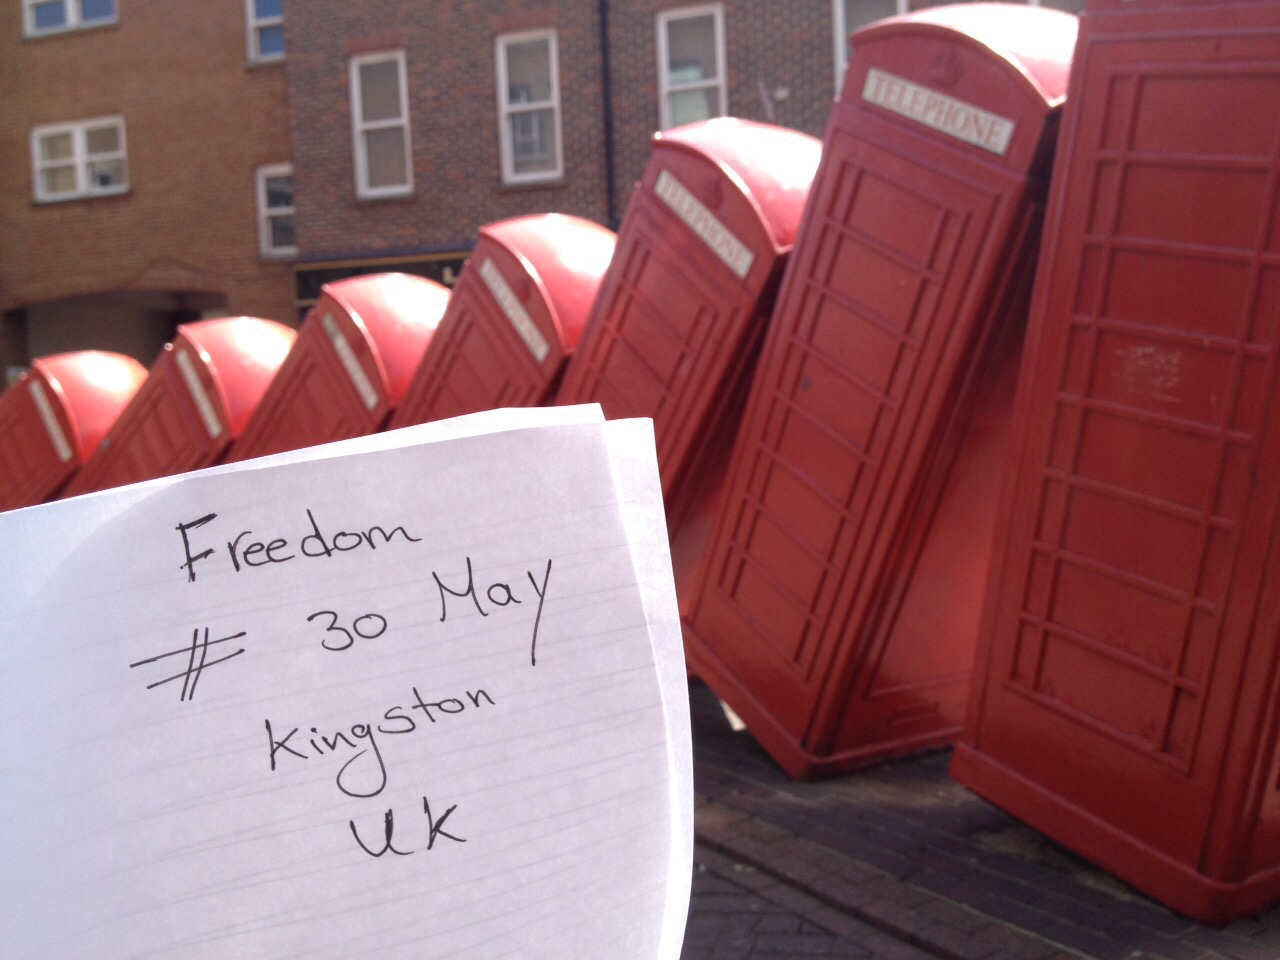 TELEPHONE
TELEPHONE
TELEPHONE
Freedom
# 30 May
Kingston
UK